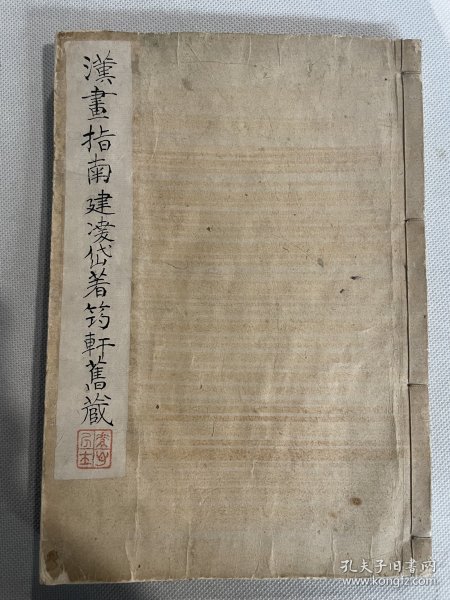 漢畫指南建凌岱著筠軒舊藏
孔夫子旧书网
www.kongfz.com